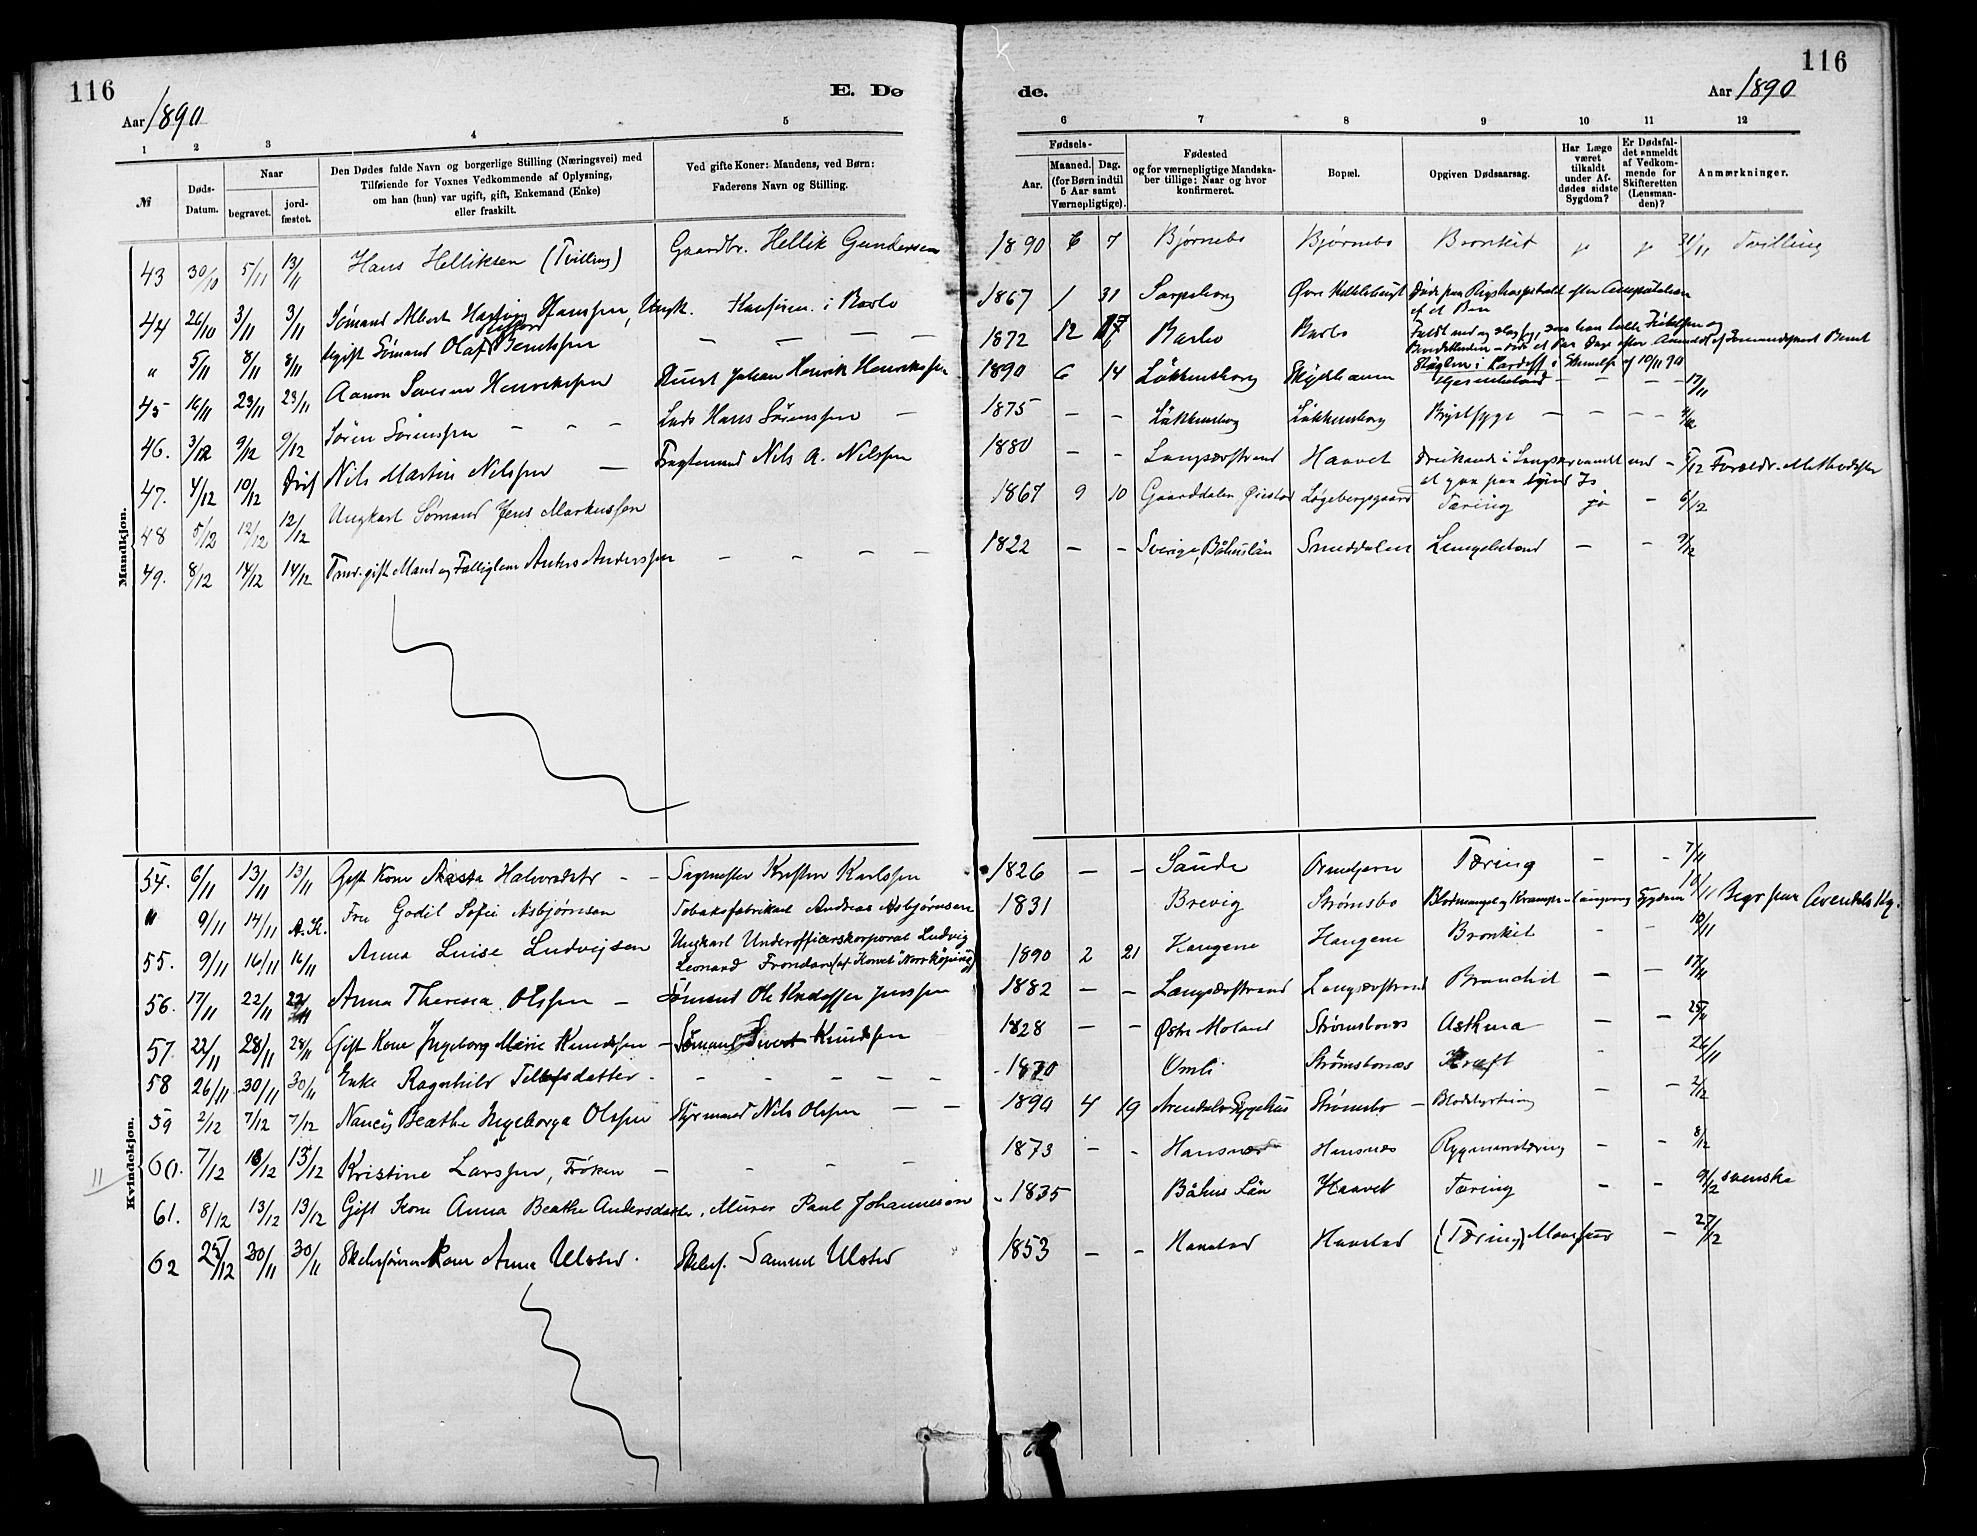 116
Aar 1890
E. Dø
1 2 3 4 5
№
Døds-Datum.
Naar
begravet.
jord-fæstet.
Den Dødes fulde Navn og borgerlige Stilling (Næringsvei) med
Tilføiende for Voxnes Vedkommende af Oplysning,
om han (hun) var ugift, gift, Enkemand (Enke)
eller fraskilt.
Ved gifte Koner: Mandens, ved Børn:
Faderens Navn og Stilling.
Mandkjøn.
43 30/10 5/11 13/11 Hans Helliksen (Tvilling) Gaardbr. Hellik Gundersen
44 26/10 3/11 3/11 Sømand Albert Hansen, Ungk. i Barbo
" 5/11 8/11 8/11 Ugift Sømand Olaf Berntssen — — —
45 16/11 23/11 23/11 Aanon Severin Henrikssen Johan Henrik Henrikssen
46. 3/12 9/12 9/12 Søren Sørenssen - - - Lods Hans Sørenssen —
47. 4/12 10/12 Nils Martin Nilssen — Nils A. Nilssen
48 5/12 12/12 12/12 Ungkarl Sømand Jens Markussen
49. 8/12 14/12 14/12 gift Mand og Fattiglem Anders Anderssen — — — —
Kvindekjøn.
54. 6/11 13/11 13/11 Gift Kone Aasta Halvorsdatr - - Sagmester Kristen Karlssen
" 9/11 14/11 A.K. Fru Godil Sofie Asbjørnsen Tobaksfabrikant Andreas Asbjørnsen
55. 9/11 16/11 16/11 Anna Luise Ludvigsen Ungkarl Underofficierskorporal Ludvig
Leonard (af Korvet "Norrköping")
56. 17/11 22/11 22/11 Anna Theresia Olssen — Sømand Ole Jenssen
57. 22/11 28/11 28/11 Gift Kone Ingeborg Marie Knudssen - Sømand Sivert Knudssen
58 26/11 30/11 30/11 Enke Ragnhild Tellefsdatter - - - - - -
59 2/12 7/12 7/12 Nancy Beathe Ingeborga Olssen Styrmand Nils Olssen — —
60. 7/12 13/12 13/12 Kristine Larssen, Frøken — - - -
61. 8/12 13/12 13/12 Gift Kone Anna Beathe Andersdatter, Murer Paul Johannesen
62 25/12 30/11 30/11 Anna Ulstad. Samuel Ulstad
116
de.
Aar 1890
6 7 8 9 10 11 12
Fødsels-
Aar.
Maaned. Dag.
(for Børn indtil
5 Aar samt
Værnepligtige).
Fødested
og for værnepligtige Mandska-
ber tillige: Naar og hvor
konfirmeret.
Bopæl.
Opgiven Dødsaarsag.
Har Læge
været
tilkaldt
under Af-
dødes sidste
Sygdom?
Er Dødsfal-
det anmeldt
af Vedkom-
mende for
Skifteretten
(Lensman-
den)?
Anmærkninger.
1890 6 7 Bjørnebo Bjørnebo Bronkit j j 31/11 Tvilling
1867 1 31 Sarpsborg Øvre Døde paa Rigshospitalet efter Amputation
af et Ben
1872 12 17 Barbo Barbo
1890 6 14 Løkkensborg - - - 17/11
1875 - - Løkkensborg Løkkensborg Brystsyge — — — — 4/12
1880 - - Langsævstrand Haavet Druknede i Langsævvandet ved - 5/12 Forældr. Methodister
at gaa paa tynd Is
1867 9 10 Gaarddalen Øiestad Løgebergsgaard Tæring ja - 6/12
1822 — — Sverige, Båhuslän Smeddalen Lungebetænd — — 9/12
1826 — — Saude Tæring — — 7/11
1831 Brevig Strømsbo Blodmangel og Krampe Langvarig Sygdom 10/11 Begr paa Arendals Kg.
1890 2 21 Haugene Haugene Bronkit - - 10/11
1882 — — Langsævstrand Langsævstrand Bronchit — — 17/11
1828 — — Østre Moland Strømsbonæs Asthma — — 25/11
1820 Omli Strømsbonæs Kræft - 26/11
1890 4 19 Arendals Sygehus Strømsbo — Blodstyrtning - - 2/12
1873 - - Hansnæs Hansnæs Rygmarvstæring - - 8/12
1835 Båhus Län Haavet Tæring - - 9/12 svenske
1853 — — Havstad Havstad (Tæring) - 27/12